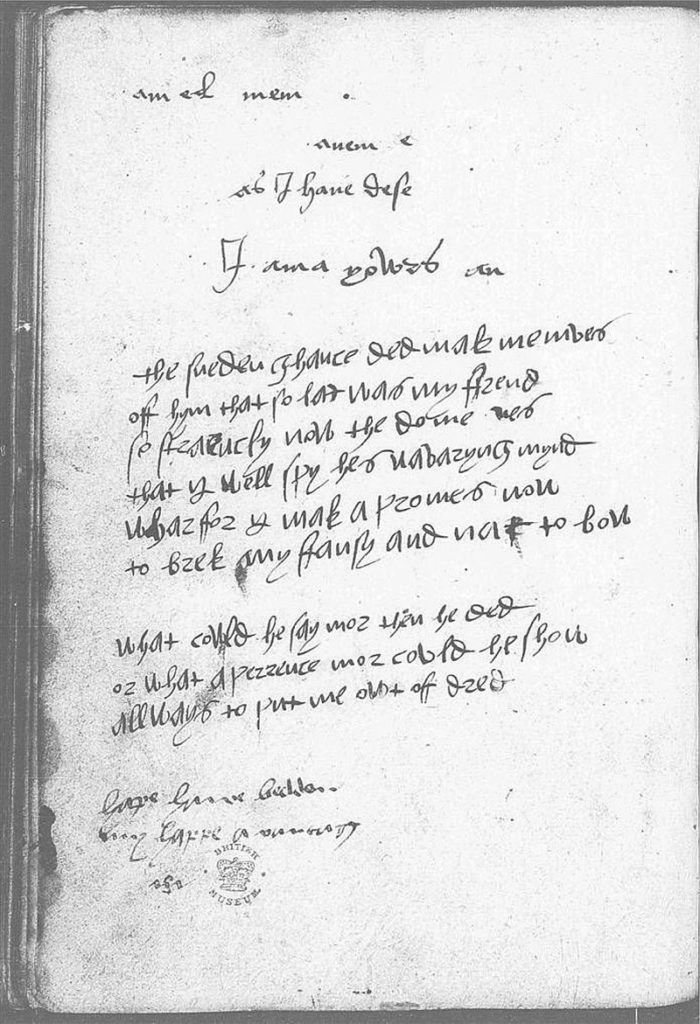 am el mem
anem e
as I haue dese
I ama yowrs an
the sueden ghance ded mak me mves
off hym that so lat was my ffrend
so straenely now the dome ves
that y well spy hes wavaryng mynd
wharffor y mak a promes now
to brek my ffansy and nat to bow
what cowld he say mor then he ded
or what aperrence mor cowld he show
allways to put me owt off dred
BRITISH MUSEUM